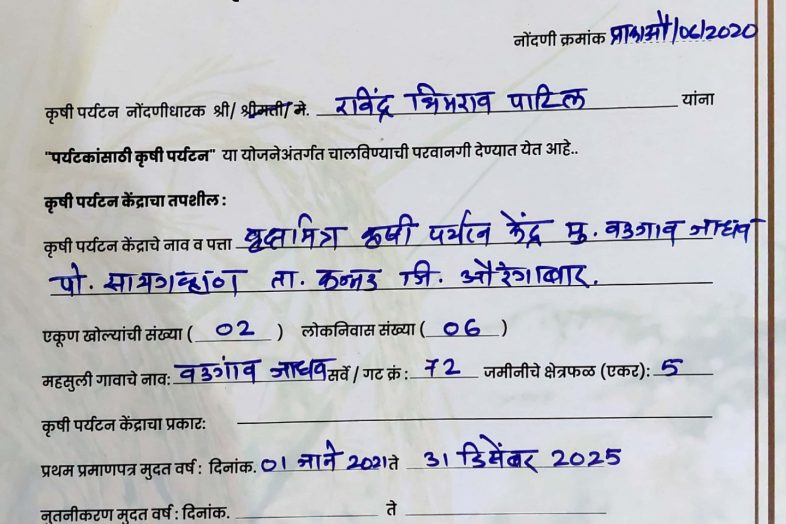 नोंदणी क्रमांक प्राकाऔ/06/2020
कृषी पर्यटन नोंदणीधारक श्री/ श्रीमती/ मे. रविंद्र भिमराव पाटिल यांना
"पर्यटकांसाठी कृषी पर्यटन" या योजनेअंतर्गत चालविण्याची परवानगी देण्यात येत आहे..
कृषी पर्यटन केंद्राचा तपशील :
कृषी पर्यटन केंद्राचे नाव व पत्ता वृक्षमित्र कृषी पर्यटन केंद्र मु. वडगाव जाधव
पो. सायगव्हाण ता. कन्नड जि. औरंगाबाद.
एकूण खोल्यांची संख्या ( 02 ) लोकनिवास संख्या ( 06 )
महसुली गावाचे नाव: वडगांव जाधव सर्वे / गट क्रं : 72 जमीनीचे क्षेत्रफळ (एकर): 5
कृषी पर्यटन केंद्राचा प्रकार:
प्रथम प्रमाणपत्र मुदत वर्ष : दिनांक. 01 जाने 2021 ते 31 डिसेंबर 2025
नूतनीकरण मुदत वर्ष : दिनांक. ते